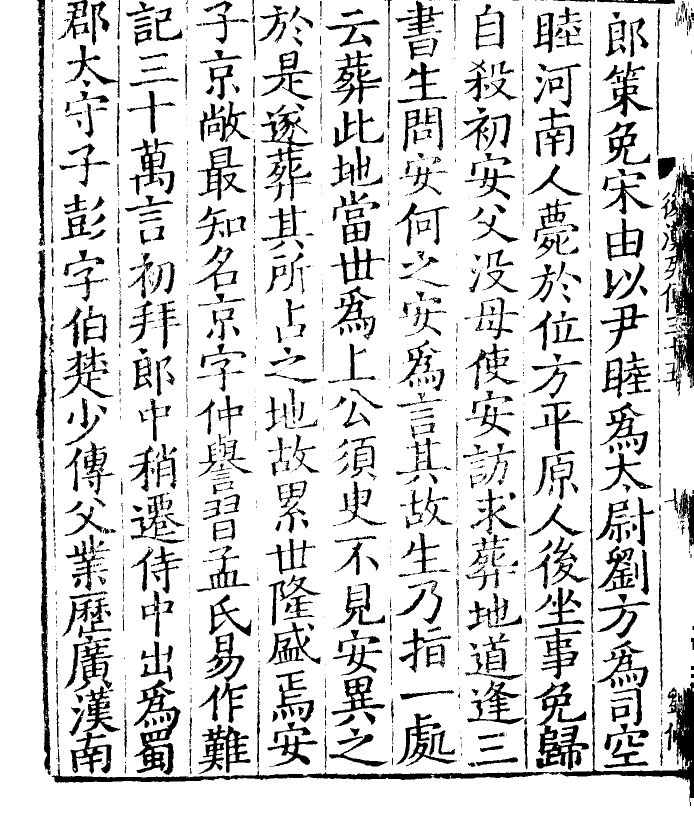 郎策免宋由以尹睦爲太尉劉方爲司空
睦河南人薨於位方平原人後坐事免歸
自殺初安父没母使安訪求葬地道逢三
書生問安何之安爲言其故生乃指一處
云葬此地當世爲上公須臾不見安異之
於是遂葬其所占之地故累世隆盛焉安
子京敞最知名京字仲譽習孟氏易作難
記三十萬言初拜郎中稍遷侍中出爲蜀
郡太守子彭字伯楚少傳父業歷廣漢南